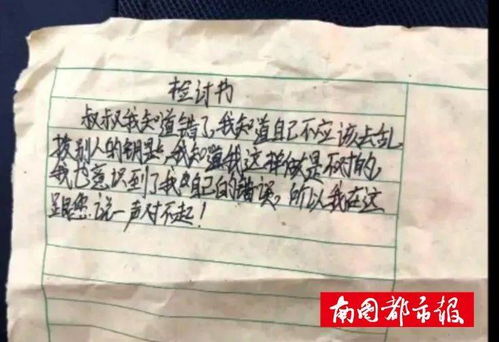 检讨书
叔叔我知道错了,我知道自己不应该去乱
拨别人的钥匙,我知道我这样做是不对的,
我也意识到了我自己的错误,所以我在这
里跟您说一声对不起!
南国都市报